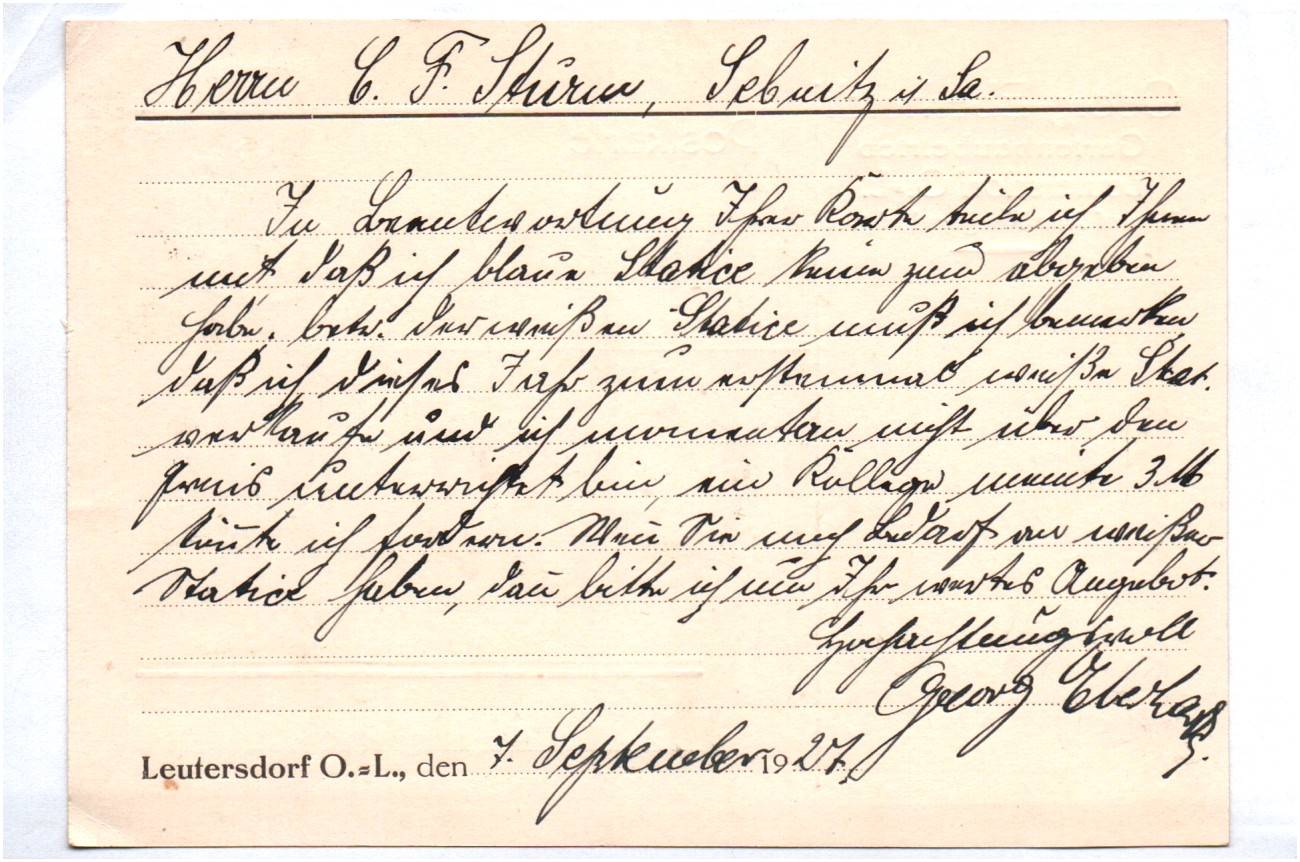 Herrn C. F. Sturm, Sebnitz i Sa.
In Beantwortung Ihrer Karte teile ich Ihnen
mit daß ich blaue Statice keine zum abgeben
habe. betr. der weißen Statice muß ich bemerken
daß ich dieses Jahr zum erstenmal weiße Stat.
verkaufe und ich momentan nicht über den
Preis unterrichtet bin, ein Kollege meinte 3 M
könnte ich fordern. Wenn Sie noch Bedarf an weißer
Statice haben, dann bitte ich um Ihr wertes Angebot.
Hochachtungsvoll
Georg Eberhardt
Leutersdorf O.=L., den 7. September 1927.